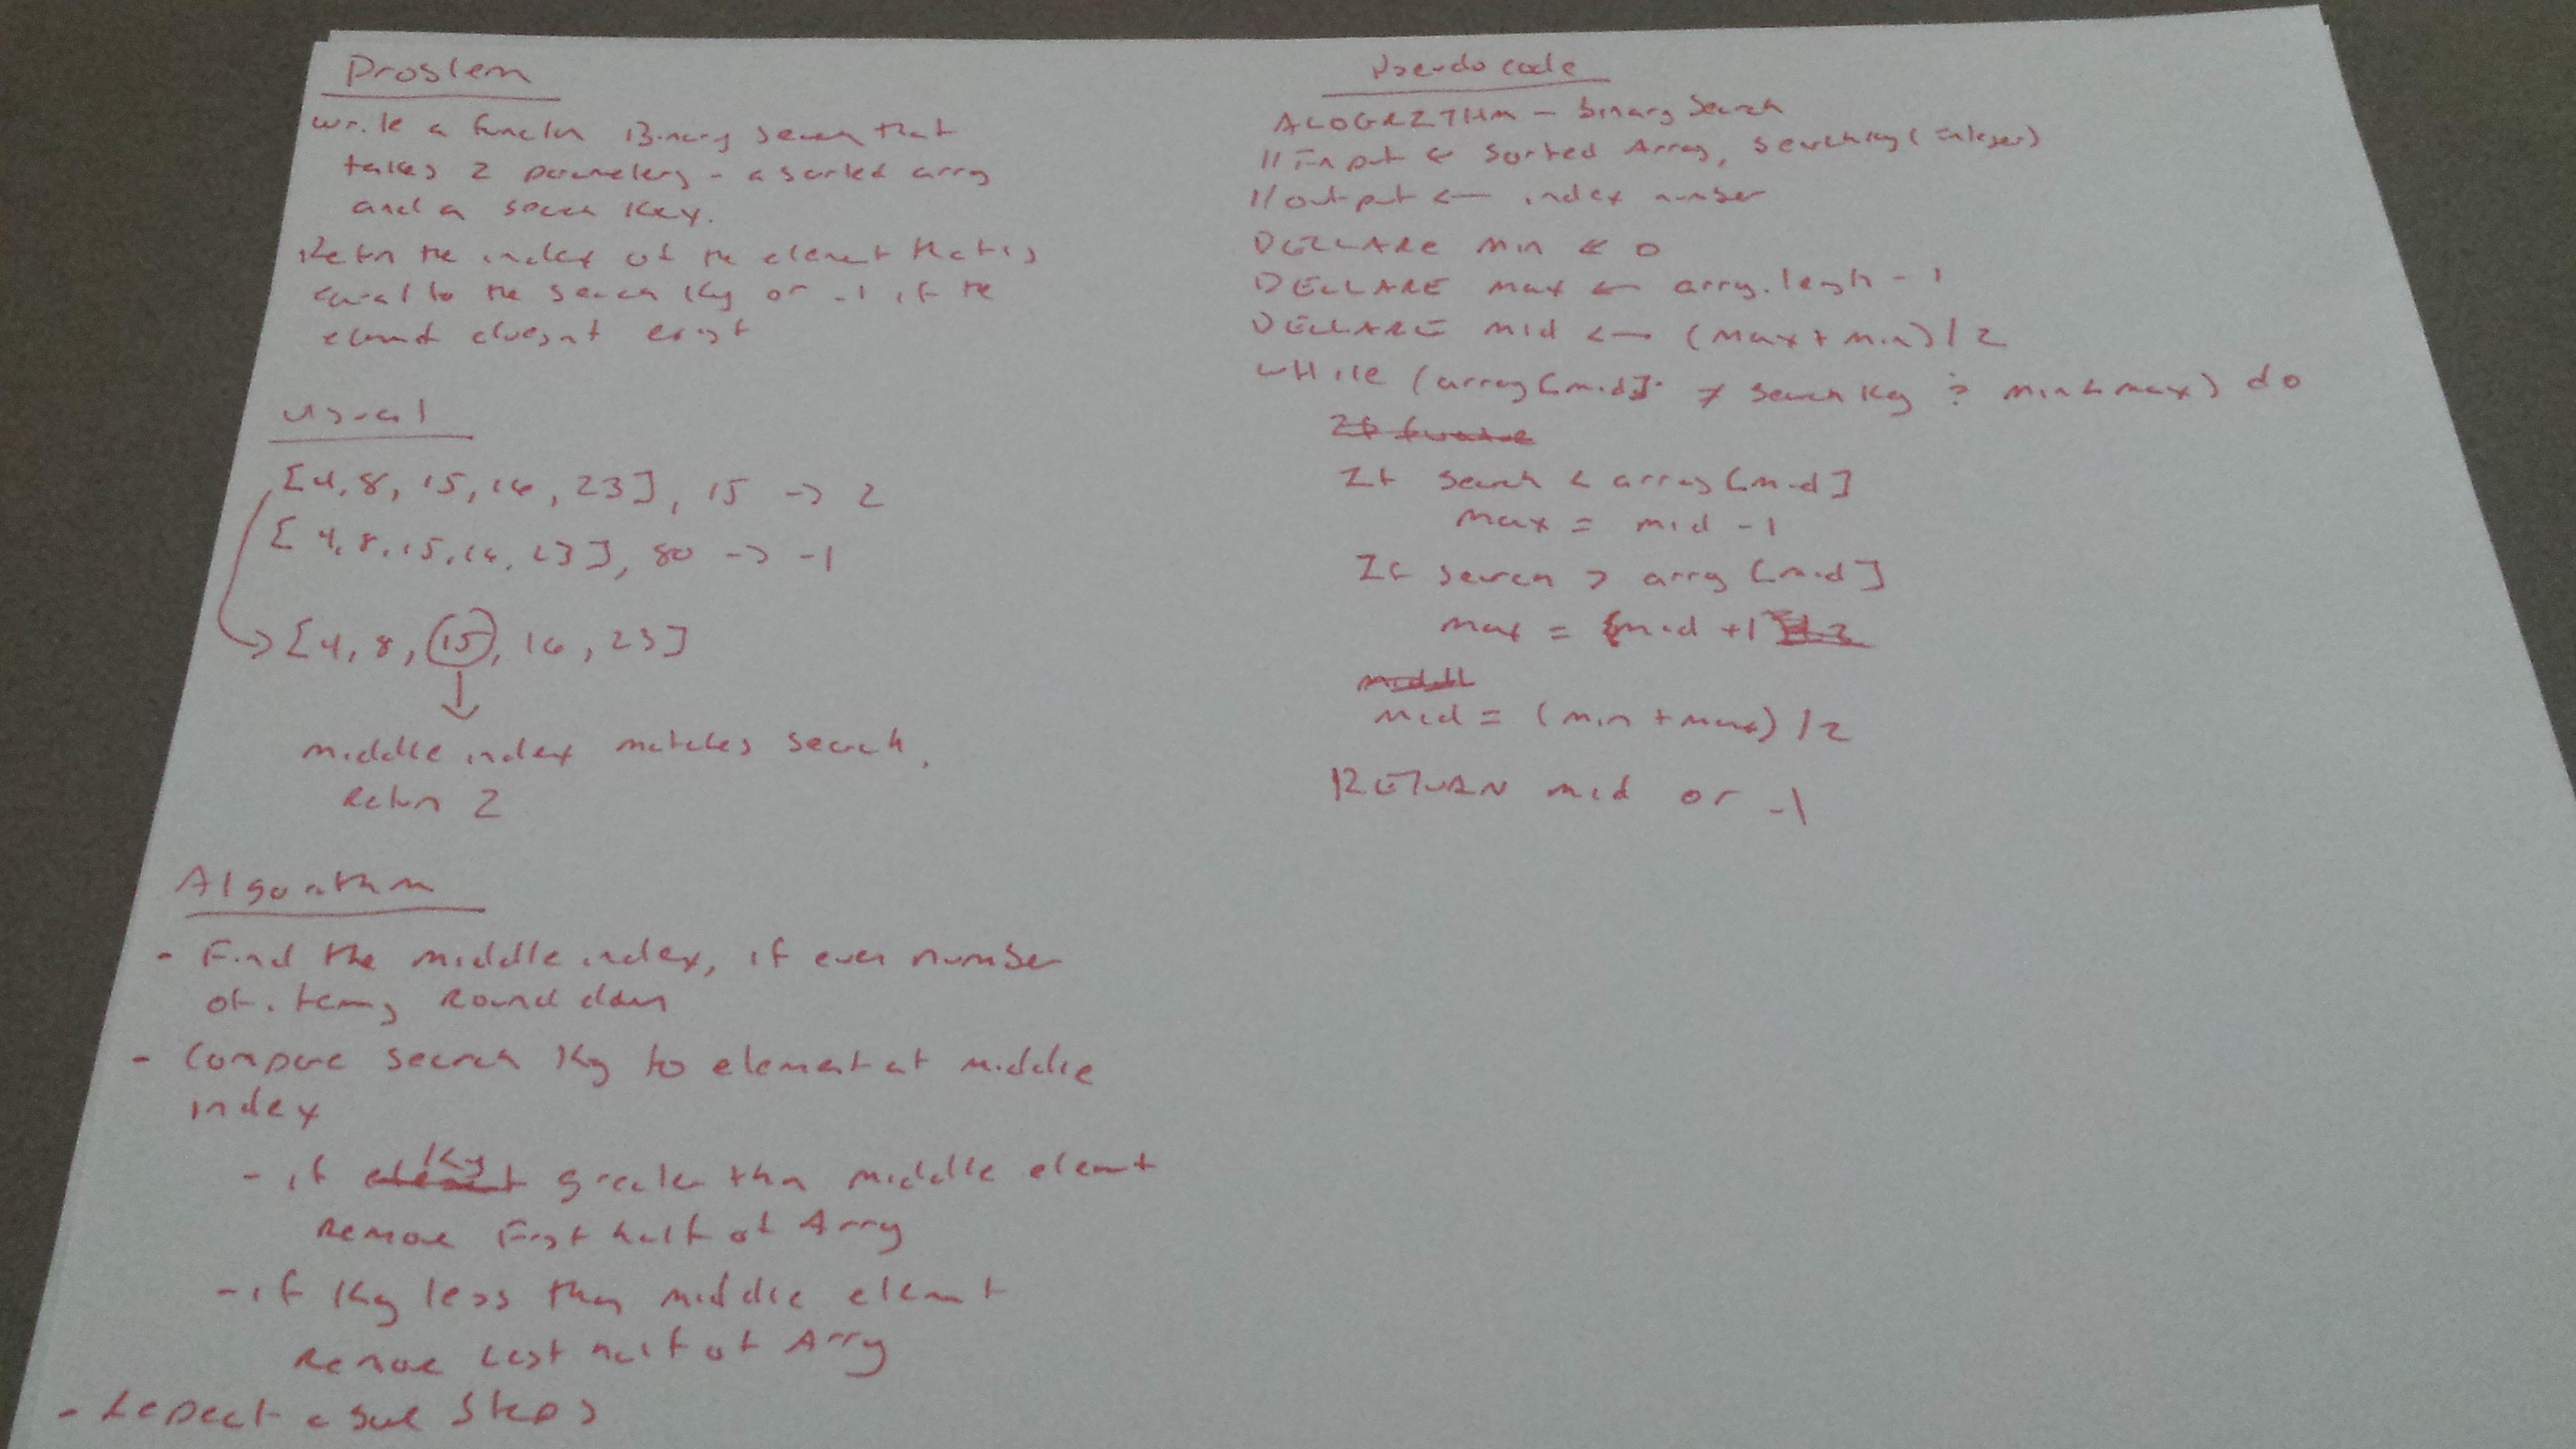 Problem
Write a function BinarySearch that
takes 2 parameters - a sorted array
and a search key.
Return the index of the element that is
equal to the search key or -1 if the
element doesnt exist
Visual
[4, 8, 15, 16, 23], 15 -> 2
[4, 8, 15, 16, 23], 80 -> -1
[4, 8, 15, 16, 23]
middle index matches search,
Return 2
Algorithm
- Find the middle index, if even number
of items round down
- Compare search key to element at middle
index
- if key greater than middle element
Remove First half of Array
- if key less than middle element
Remove Last half of Array
- Repeat above steps
Pseudo code
ALOGRITHM - binary Search
// Input <- Sorted Array, searchkey (integer)
// output <- index number
DECLARE min <- 0
DECLARE max <- array.length - 1
DECLARE mid <- (max + min) / 2
WHILE (array[mid] ≠ search key ; min < max) do
If search < array [mid]
max = mid - 1
If search > array [mid]
max = mid + 1
mid = (min + max) / 2
RETURN mid or -1